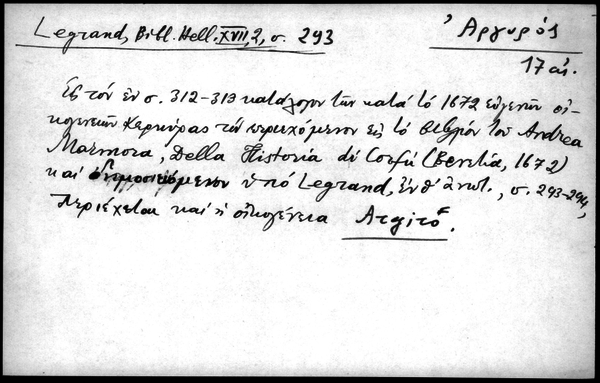 Legrand, Bibl. Hell. XVII, 2, σ. 293
Ἀργυρός
17 αἰ.
Εἰς τόν ἐν σ. 312-313 κατάλογον τῶν κατά τό 1672 εὐγενῶν οἰ-
κογενειῶν Κερκύρας τόν περιεχόμενον εἰς τό βιβλίον τοῦ Andrea
Marmora, Della Historia di Corfù (Βενετία, 1672)
καί δημοσιευόμενον ὑπό Legrand, ἔνθ' ἀνωτ., σ. 293-294,
περιέχεται καί ἡ οἰκογένεια Argirò.